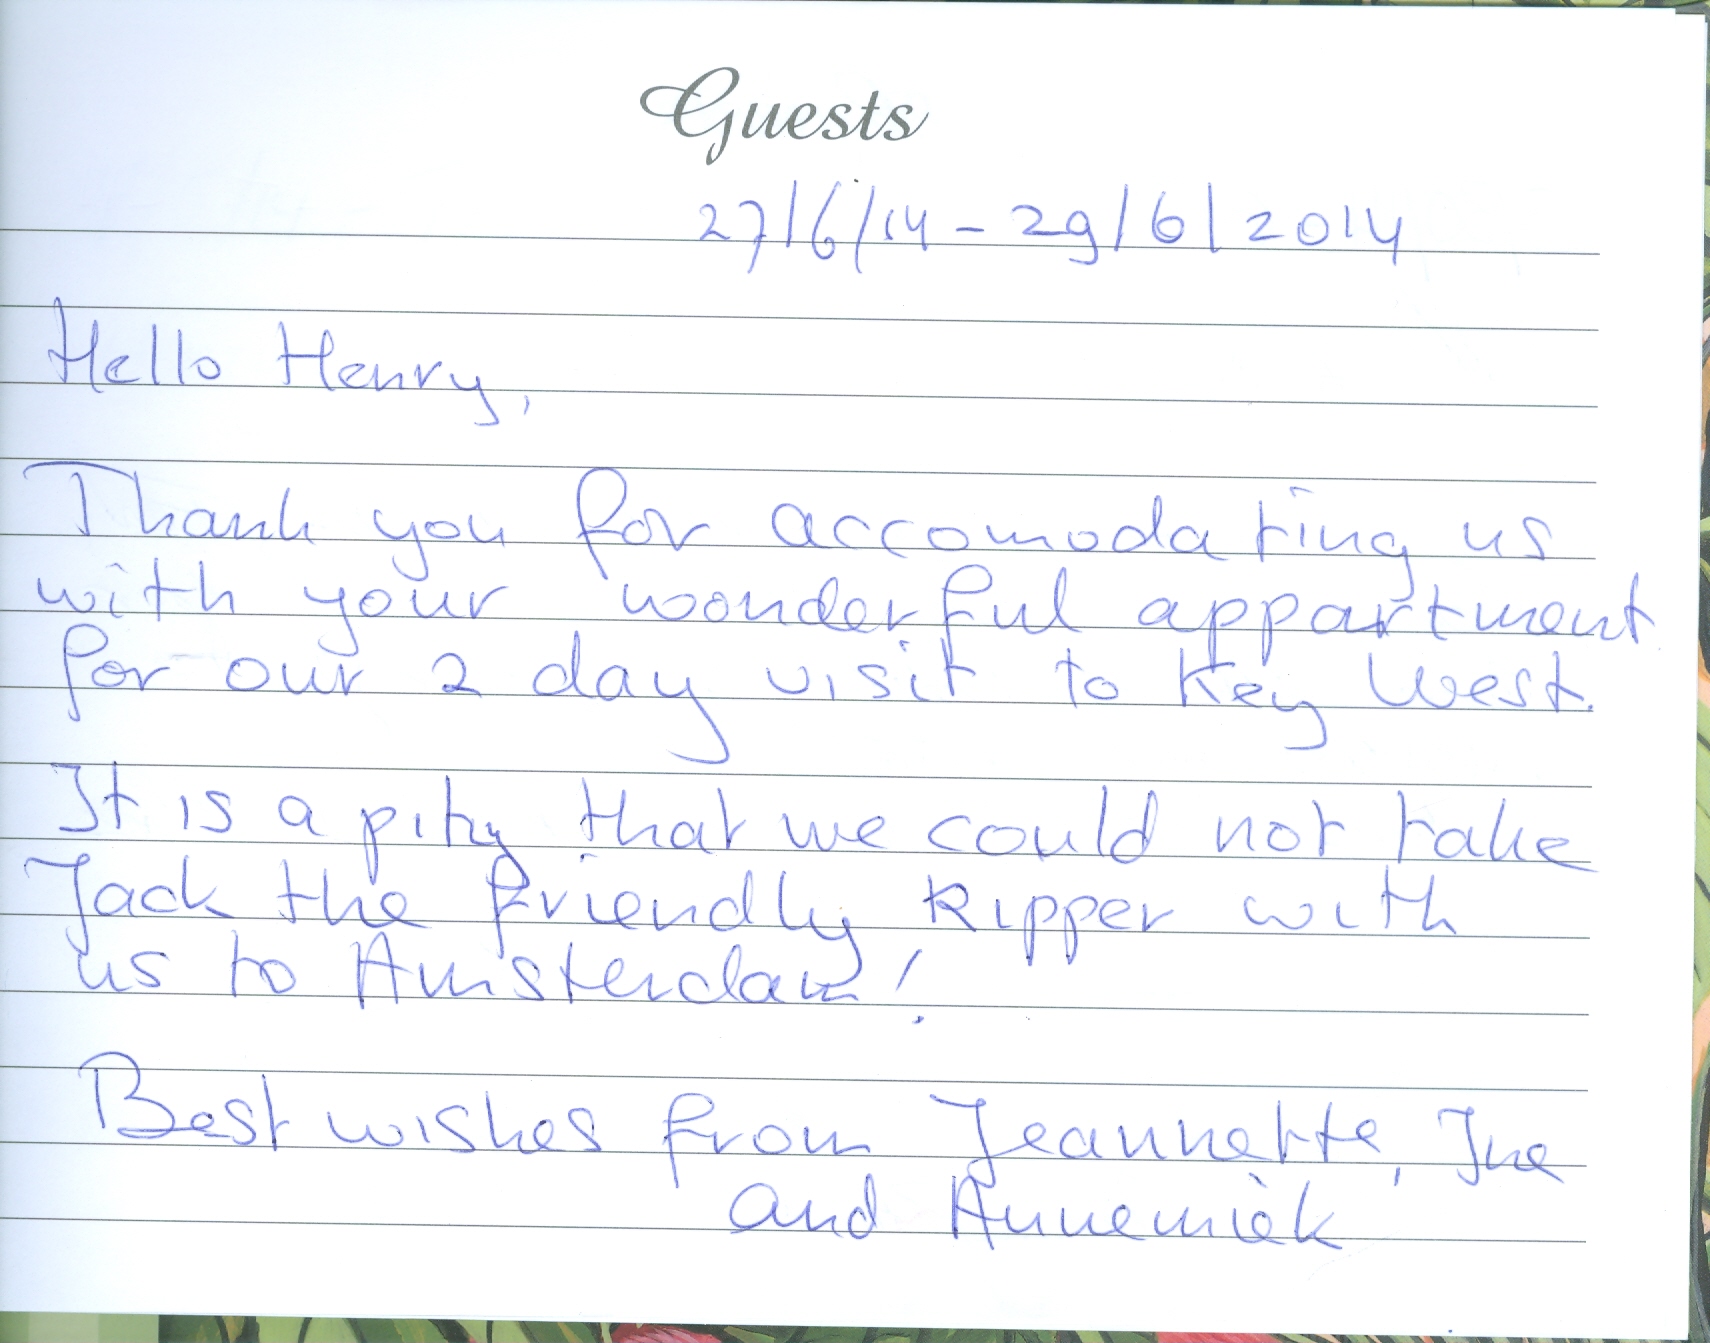 Guests
27/6/14 - 29/6/2014
Hello Henry,
Thank you for accomodating us
with your wonderful appartment
for our 2 day visit to Key West.
It is a pity that we could not take
Jack the friendly Ripper with
us to Amsterdam!
Best wishes from Jeannette, Ine
and Annemiek